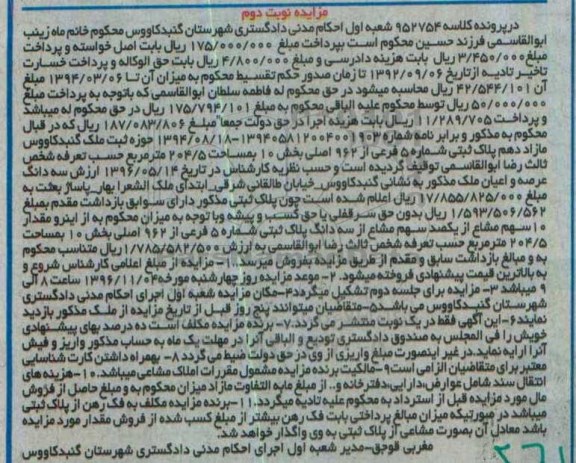 مزایده نوبت دوم
درپرونده کلاسه ۹۵۲۷۵۴ شعبه اول احکام مدنی دادگستری شهرستان گنبدکاووس محکوم خانم ماه زینب
ابوالقاسمی فرزند حسین محکوم است بپرداخت مبلغ ۱۷۵/۰۰۰/۰۰۰ ریال بابت اصل خواسته و پرداخت
مبلغ ۳/۴۵۰/۰۰۰ ریال بابت هزینه دادرسی و مبلغ ۴/۸۰۰/۰۰۰ ریال بابت حق الوکاله و پرداخت خسارت
تاخیر تادیه از تاریخ ۱۳۹۲/۰۹/۰۶ تا زمان صدور حکم تقسیط محکوم به میزان آن تا ۱۳۹۴/۰۳/۰۶ مبلغ
۴۲/۵۴۴/۱۰۱ ریال محاسبه میشود در حق محکوم له فاطمه سلطان ابوالقاسمی که باتوجه به پرداخت مبلغ
۵۰/۰۰۰/۰۰۰ ریال توسط محکوم علیه الباقی محکوم به مبلغ ۱۷۵/۷۹۴/۱۰۱ ریال در حق محکوم له میباشد
و پرداخت ۱۱/۲۸۹/۷۰۵ ریال بابت هزینه اجرا در حق دولت جمعا" مبلغ ۱۸۷/۰۸۳/۸۰۶ ریال که در قبال
محکوم به مذکور و برابر نامه شماره ۱۳۹۴۰۵۸۱۲۰۰۴۰۰۱۹۰۳-۱۳۹۴/۰۸/۱۸ حوزه ثبت ملک گنبدکاووس
مازاد دهم پلاک ثبتی شماره ۵ فرعی از ۹۶۲ اصلی بخش ۱۰ بمساحت ۲۰۴/۵ مترمربع حسب تعرفه شخص
ثالث رضا ابوالقاسمی توقیف گردیده است و حسب نظریه کارشناس در تاریخ ۱۳۹۶/۰۵/۱۴ ارزش سه دانگ
عرصه و اعیان ملک مذکور به نشانی گنبدکاووس_خیابان طالقانی شرقی_ابتدای ملک الشعرا بهار_پاساژ بعثت به
مبلغ ۱۷/۸۵۵/۸۲۵/۰۰۰ ریال اعلام شده است چون پلاک ثبتی مذکور دارای سوابق بازداشت مقدم بمبلغ
۱/۵۹۳/۵۰۶/۵۶۲ ریال بدون حق سرقفلی یا حق کسب و پیشه و با توجه به میزان محکوم به از اینرو مقدار
۱۰ سهم مشاع از یکصد سهم مشاع از سه دانگ پلاک ثبتی شماره ۵ فرعی از ۹۶۲ اصلی بخش ۱۰ بمساحت
۲۰۴/۵ مترمربع حسب تعرفه شخص ثالث رضا ابوالقاسمی به ارزش ۱/۷۸۵/۵۸۲/۵۰۰ ریال متناسب محکوم
به و مبالغ بازداشت سابق و مقدم از طریق مزایده بفروش میرسد.۱-مزایده از مبلغ اعلامی کارشناس شروع و
به بالاترین قیمت پیشنهادی فروخته میشود.۲- موعد مزایده روز چهارشنبه مورخه ۱۳۹۶/۱۱/۰۴ ساعت ۸ الی
۹ میباشد ۳- مزایده برای جلسه دوم تشکیل میگردد۴-مکان مزایده شعبه اول اجرای احکام مدنی دادگستری
شهرستان گنبدکاووس می باشد۵-متقاضیان میتوانند پنج روز قبل از تاریخ مزایده از ملک مذکور بازدید
نمایند۶-این آگهی فقط در یک نوبت منتشر می گردد.۷- برنده مزایده مکلف است ده درصد بهای پیشنهادی
خویش را فی المجلس به صندوق دادگستری تودیع و الباقی آنرا در مهلت یک ماه به حساب مذکور واریز و فیش
آنرا ارایه نماید.در غیر اینصورت مبلغ واریزی از وی در حق دولت ضبط می گردد ۸- بهمراه داشتن کارت شناسایی
معتبر برای متقاضیان الزامی است۹-مالکیت برنده مزایده مشمول مقررات املاک مشاعی میباشد.۱۰-هزینه های
انتقال سند شامل عوارض،دارایی،دفترخانه و.. از مبلغ مابه التفاوت مازاد میزان محکوم به و مبلغ حاصل از فروش
مال مورد مزایده قبل از استرداد به محکوم علیه تادیه میگردد.۱۱-برنده مزایده مکلف به فک رهن از پلاک ثبتی
میباشد در صورتیکه میزان مبالغ پرداختی بابت فک رهن بیشتر از مبلغ کسب شده از فروش مقدار مورد مزایده
باشد معادل آن بصورت مشاعی از پلاک ثبتی به وی واگذار خواهد شد.
مغربی قوجق-مدیر شعبه اول اجرای احکام مدنی دادگستری شهرستان گنبدکاووس